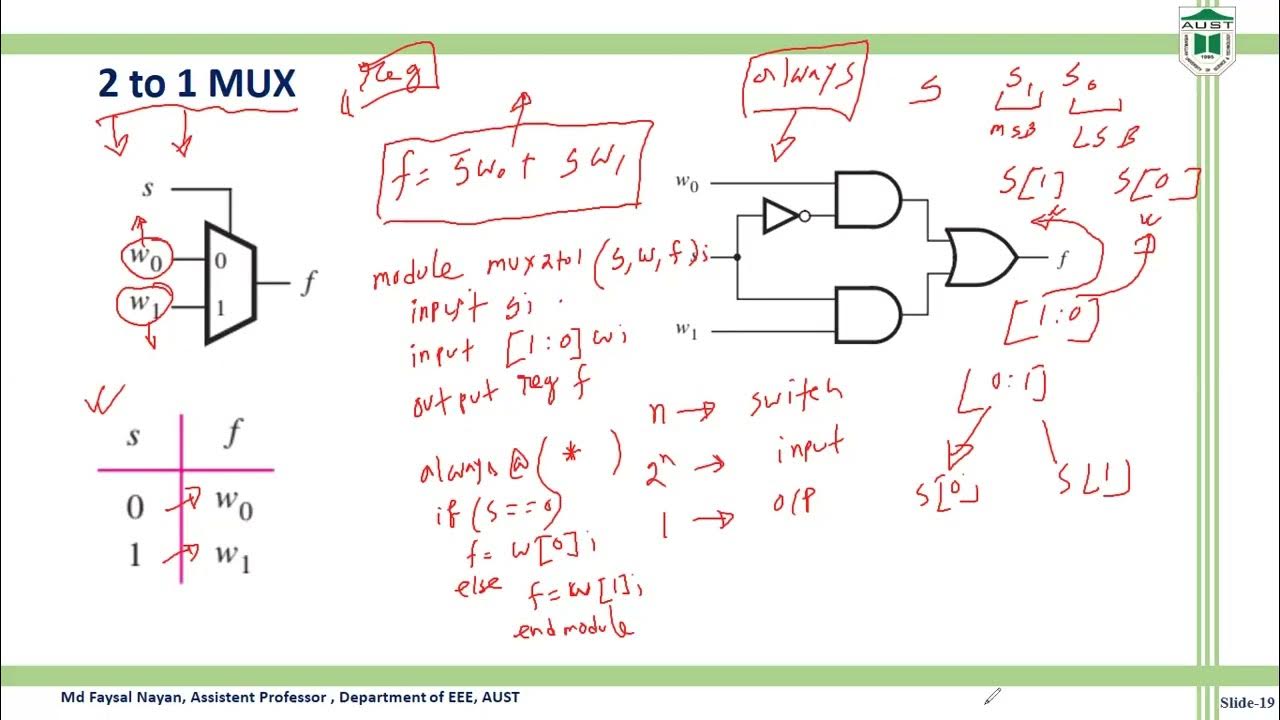 AUST
2 to 1 MUX
reg
always
S S1 S0
MSB LSB
S[1] S[0]
[1:0]
[0:1]
S[0] S[1]
f = S̅w0 + Sw1
s
w0 0
w1 1
f
w0
w1
f
module mux2to1 (S, w, f);
input S;
input [1:0] w;
output reg f
always @ ( * )
if (S == 0)
f = w[0];
else f = w[1];
endmodule
n → switch
2ⁿ → input
1 → O/P
s f
0 w0
1 w1
Md Faysal Nayan, Assistent Professor , Department of EEE, AUST
Slide-19